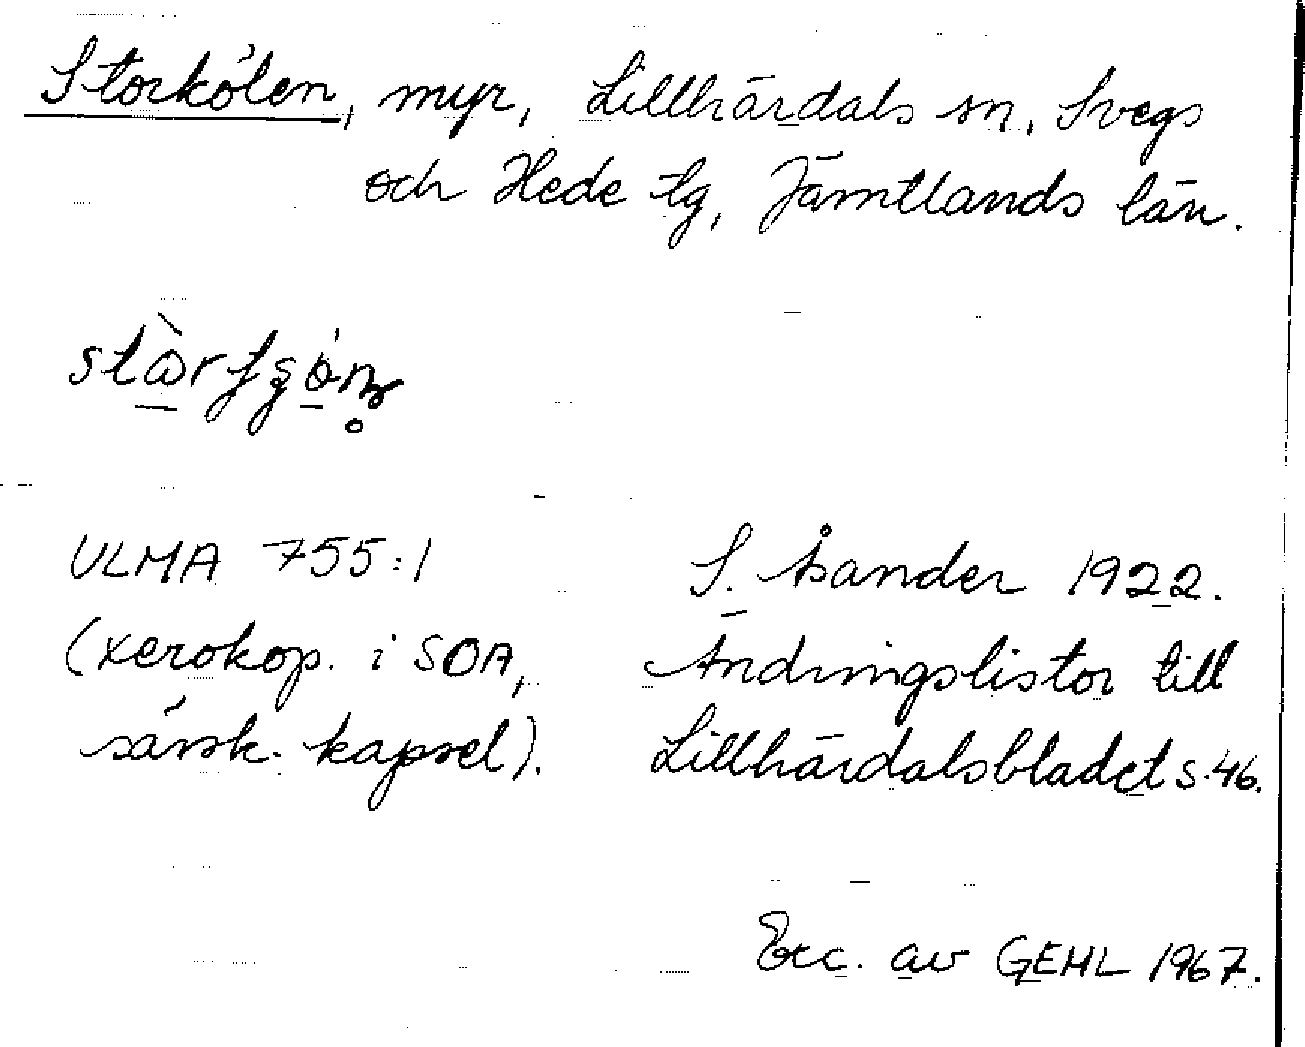 Storkölen, myr, Lillhärdals sn, Svegs
och Hede tg, Jämtlands län.
ULMA 755:1
(xerokop. i SOA,
särsk. kapsel).
S. Åsander 1922.
Ändringslistor till
Lillhärdalsbladet s. 46.
Exc. av GEHL 1967.